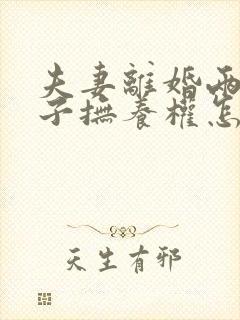 夫妻離婚兩
子撫養權怎
天生有邪